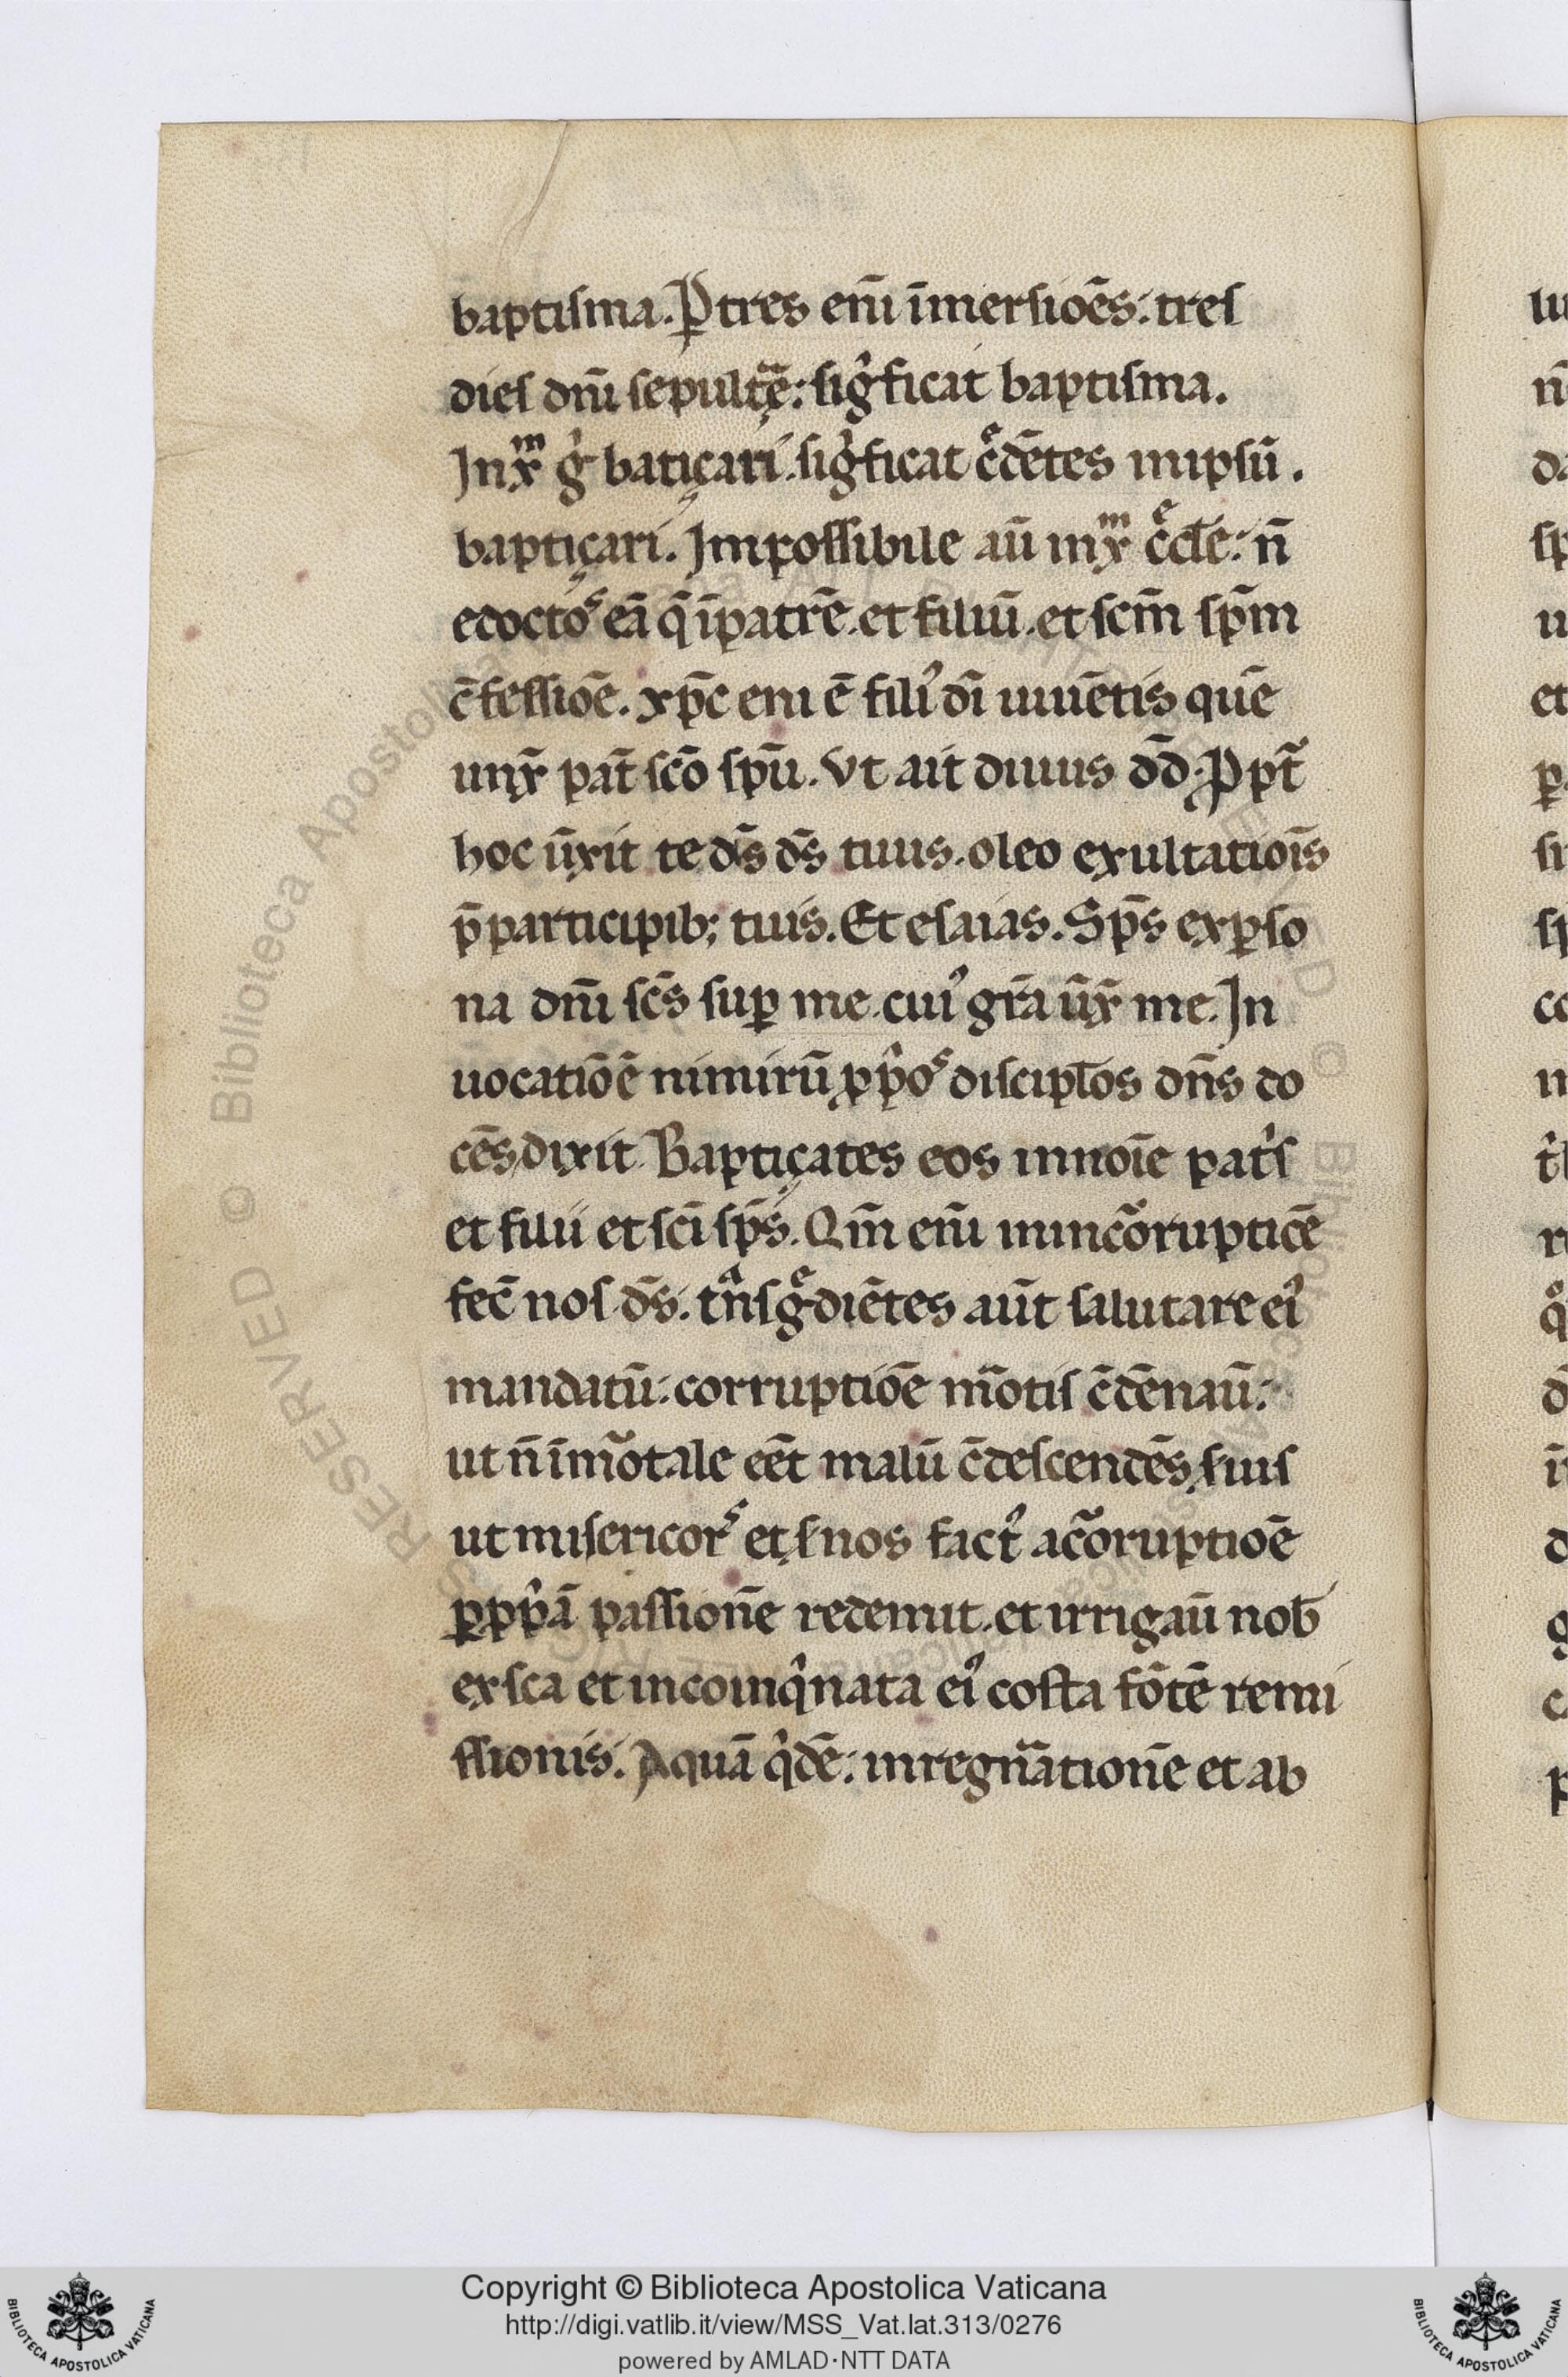 baptiſma. Ꝑ tres enı̄ īmerſioēs: treſ
dieſ dnı̄ ſepultᷓę: ſigͥficat baptiſma.
In xᵐ gͥ batiçari. ſigͥficat cᵉdētes in ipſū.
baptiçari. Impoſſibile aū in xᵐ cᵉdēe: n̄
edoctoˢ eā q̄ ī patrē. et filiū. et ſcm̄ ſpm̄
c̄feſſioē. xp̄c eni ē filiꝰ dı̄ uiuētis quē
unx̄ pat̄ ſcō ſpū. Vt ait diuus dd̄. Ꝓpt̄
hoc ūxit te ds̄ ds̄ tuus. oleo exultatioı̄s
p̄ participib; tuis. Et eſaias. Sps̄ ex ꝑſo
na dnı̄ ſcs̄ ſuꝑ me. cuiꝰ grā ūx̄ me. In
uocatiōē nimirū ꝓpͥoˢ diſcipl̄os dns̄ do
cēs dixit. Baptiçates eos in noı̄e patͥſ
et filii et ſcı̄ ſps̄. Qm̄ enı̄ in incoᷓrupticē
fec̄ noſ ds̄. tᵃnſgᵉdiētes aūt ſalutare eiꝰ
mandatū: corruptioē mᷓotiſ c̄dēnaū:
ut n̄ īmᷓotale eēt malū c̄deſcendēs ſuiſ
ut miſericorˢ et ſnos factꝰ a coᷓruptioē
ꝑ ꝓpͥā paſſionē redemit. et irrigaū nob̄
ex ſca et incoinqͥnata eiꝰ coſta fōtē remi
ſſionis. Aquā qͥdē: in regnᷓationē et ab
Copyright © Biblioteca Apostolica Vaticana
http://digi.vatlib.it/view/MSS_Vat.lat.313/0276
powered by AMLAD·NTT DATA